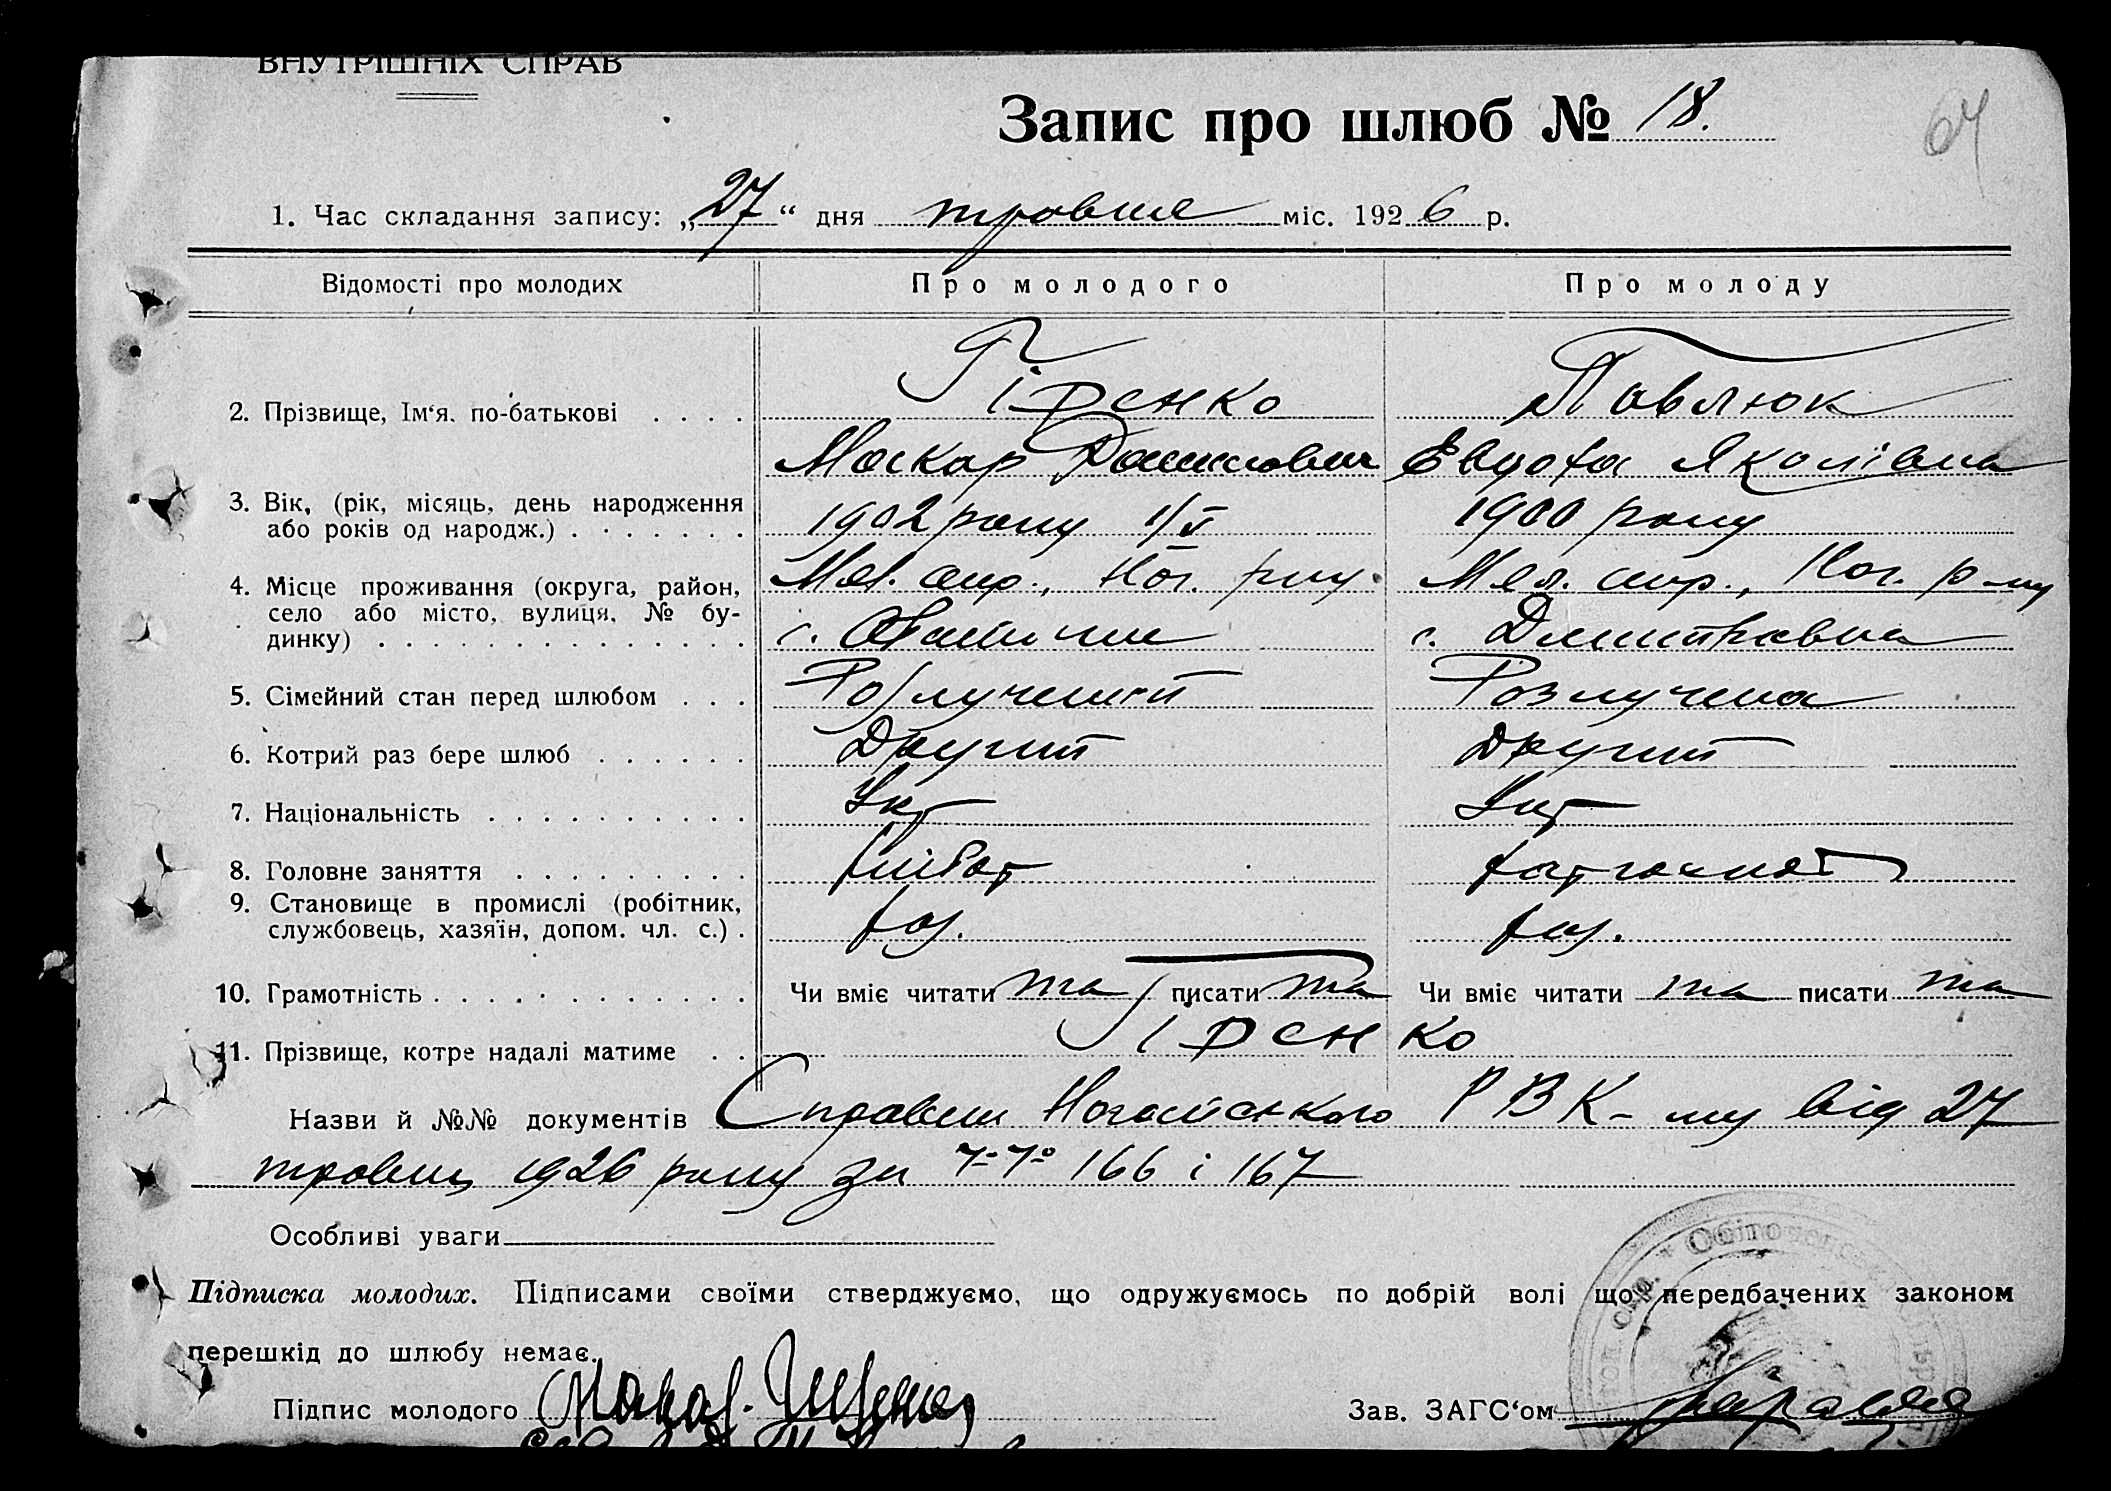 ВНУТРІШНІХ СПРАВ
Запис про шлюб № 18.
64
1. Час складання запису: „27“ дня травня міс. 1926 р.
Відомості про молодих Про молодого Про молоду
2. Прізвище, Ім‘я, по-батькові Гіренко Павлюк
Макар Данилович Евдоха Яколівна
3. Вік, (рік, місяць, день народження
або років од народж.) 1902 року 1/V 1900 року
4. Місце проживання (округа, район, Мел. окр., Ног. рну. Мел. окр., Ног. р-ну
село або місто, вулиця, № бу-
динку) с. с. Дмитрівна
5. Сімейний стан перед шлюбом Розлучений Розлучена
6. Котрий раз бере шлюб Другий Другий
7. Національність Укр Укр
8. Головне заняття хлібор
9. Становище в промислі (робітник,
службовець, хазяїн, допом. чл. с.) хаз. хаз.
10. Грамотність Чи вміє читати та писати та Чи вміє читати та писати та
11. Прізвище, котре надалі матиме Гіренко
Назви й №№ документів Справки Ногайського РВК-му від 27
травня 1926 року за №№ 166 і 167
Особливі уваги
Підписка молодих. Підписами своїми стверджуємо, що одружуємось по добрій волі що передбачених законом
перешкід до шлюбу немає.
Підпис молодого Макар. Зав. ЗАГС‘ом